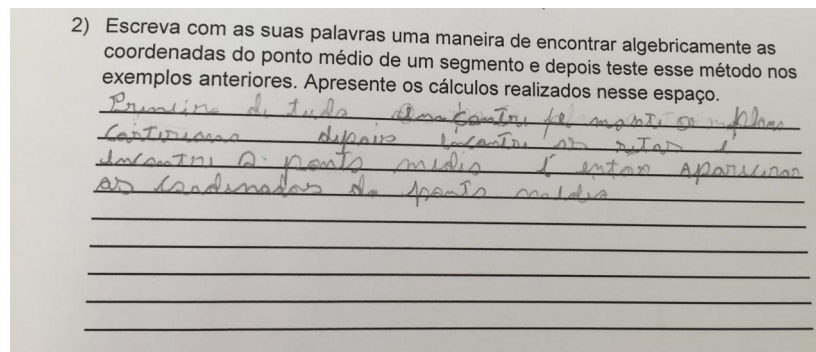 2) Escreva com as suas palavras uma maneira de encontrar algebricamente as
coordenadas do ponto médio de um segmento e depois teste esse método nos
exemplos anteriores. Apresente os cálculos realizados nesse espaço.
Primeiro de tudo monte o plano
Cartesiano depois encontre as retas e
encontre o ponto medio e entao apareceram
as cordenadas do ponto medio